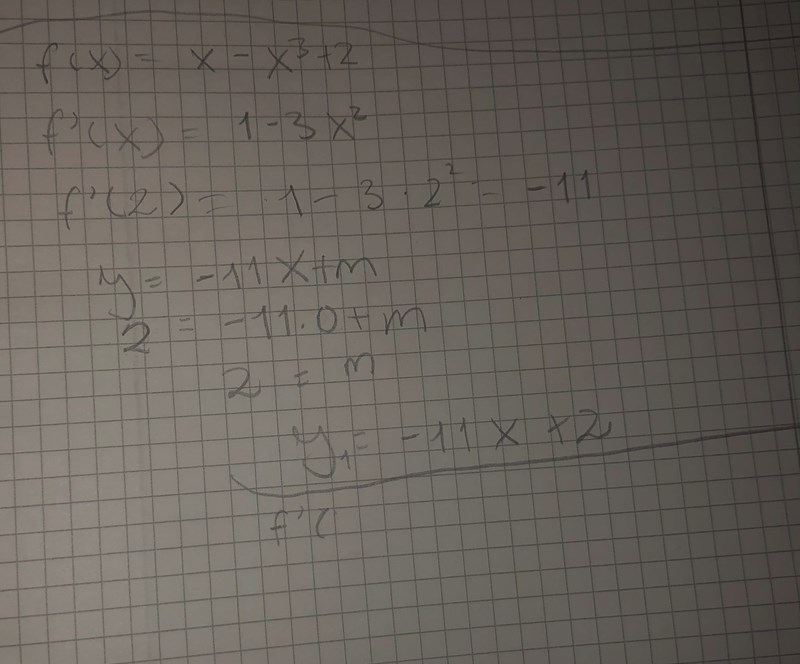 f(x) = x - x³ + 2
f'(x) = 1 - 3x²
f'(2) = 1 - 3 · 2² = -11
y = -11x + m
2 = -11 · 0 + m
2 = m
y₁ = -11x + 2
f'(